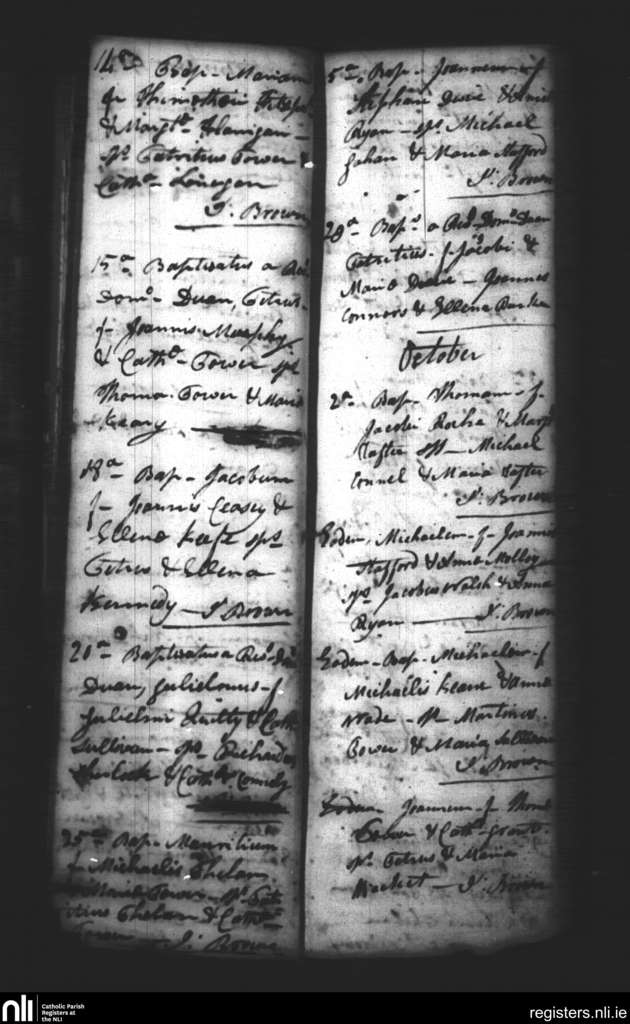 14a Bap- Mariam
fa Thimothei Fitzpa
& Margte Flanigan -
Sps Patritius Power
Catha Linegan
J. Brown
15a Baptizatus a Revd
Domo Duan, Petrus
f- Joannis Murphy
& Cathe- Power sps
Thoma Power & Maria
Keary
18a Bap- Jacobum
f- Joannis Ceasey &
Ellena Keefe sps
Petrus & Ellena
Kennedy - J Brown
20a Baptizatus a Revd Domo
Duan, Gulielmus f-
Gulielmi Quilty & Cath
Sullivan - sps Richardus
Sherlock & Cath Comedy
25a Bap- Mauritium
f- Michaelis Phelan
Maria Power - Sps Pat
itius Phelan & Cath
Power - J. Brown
5a Bap- Joannem f
Stephani & Anna
Ryan - sps Michael
Gahan & Maria Stafford
J. Brown
28a Baps a Revd Domo Duan
Patritius f- Jacobi &
Maria - Joannes
Connors & Ellena Burke
October
2a Bap- Thomam f-
Jacobi Roche & Margt
sps - Michael
Connel & Maria
J. Brown
Eodem, Michaelem - f- Joannis
Stafford & Anna Molloy
sps Jacobus Walsh & Anna
Ryan - J. Brown
Eodem - Bap- Michaelem - f
Michaelis Keane & Anna
Wade - sps Martinus
Power & Maria Sullivan
J. Brown
Eodem Joannem f- Thoma
Power & Cath- Grant
sps Petrus & Maria
Hacket - J. Brown
nli
Catholic Parish
Registers at
the NLI
registers.nli.ie